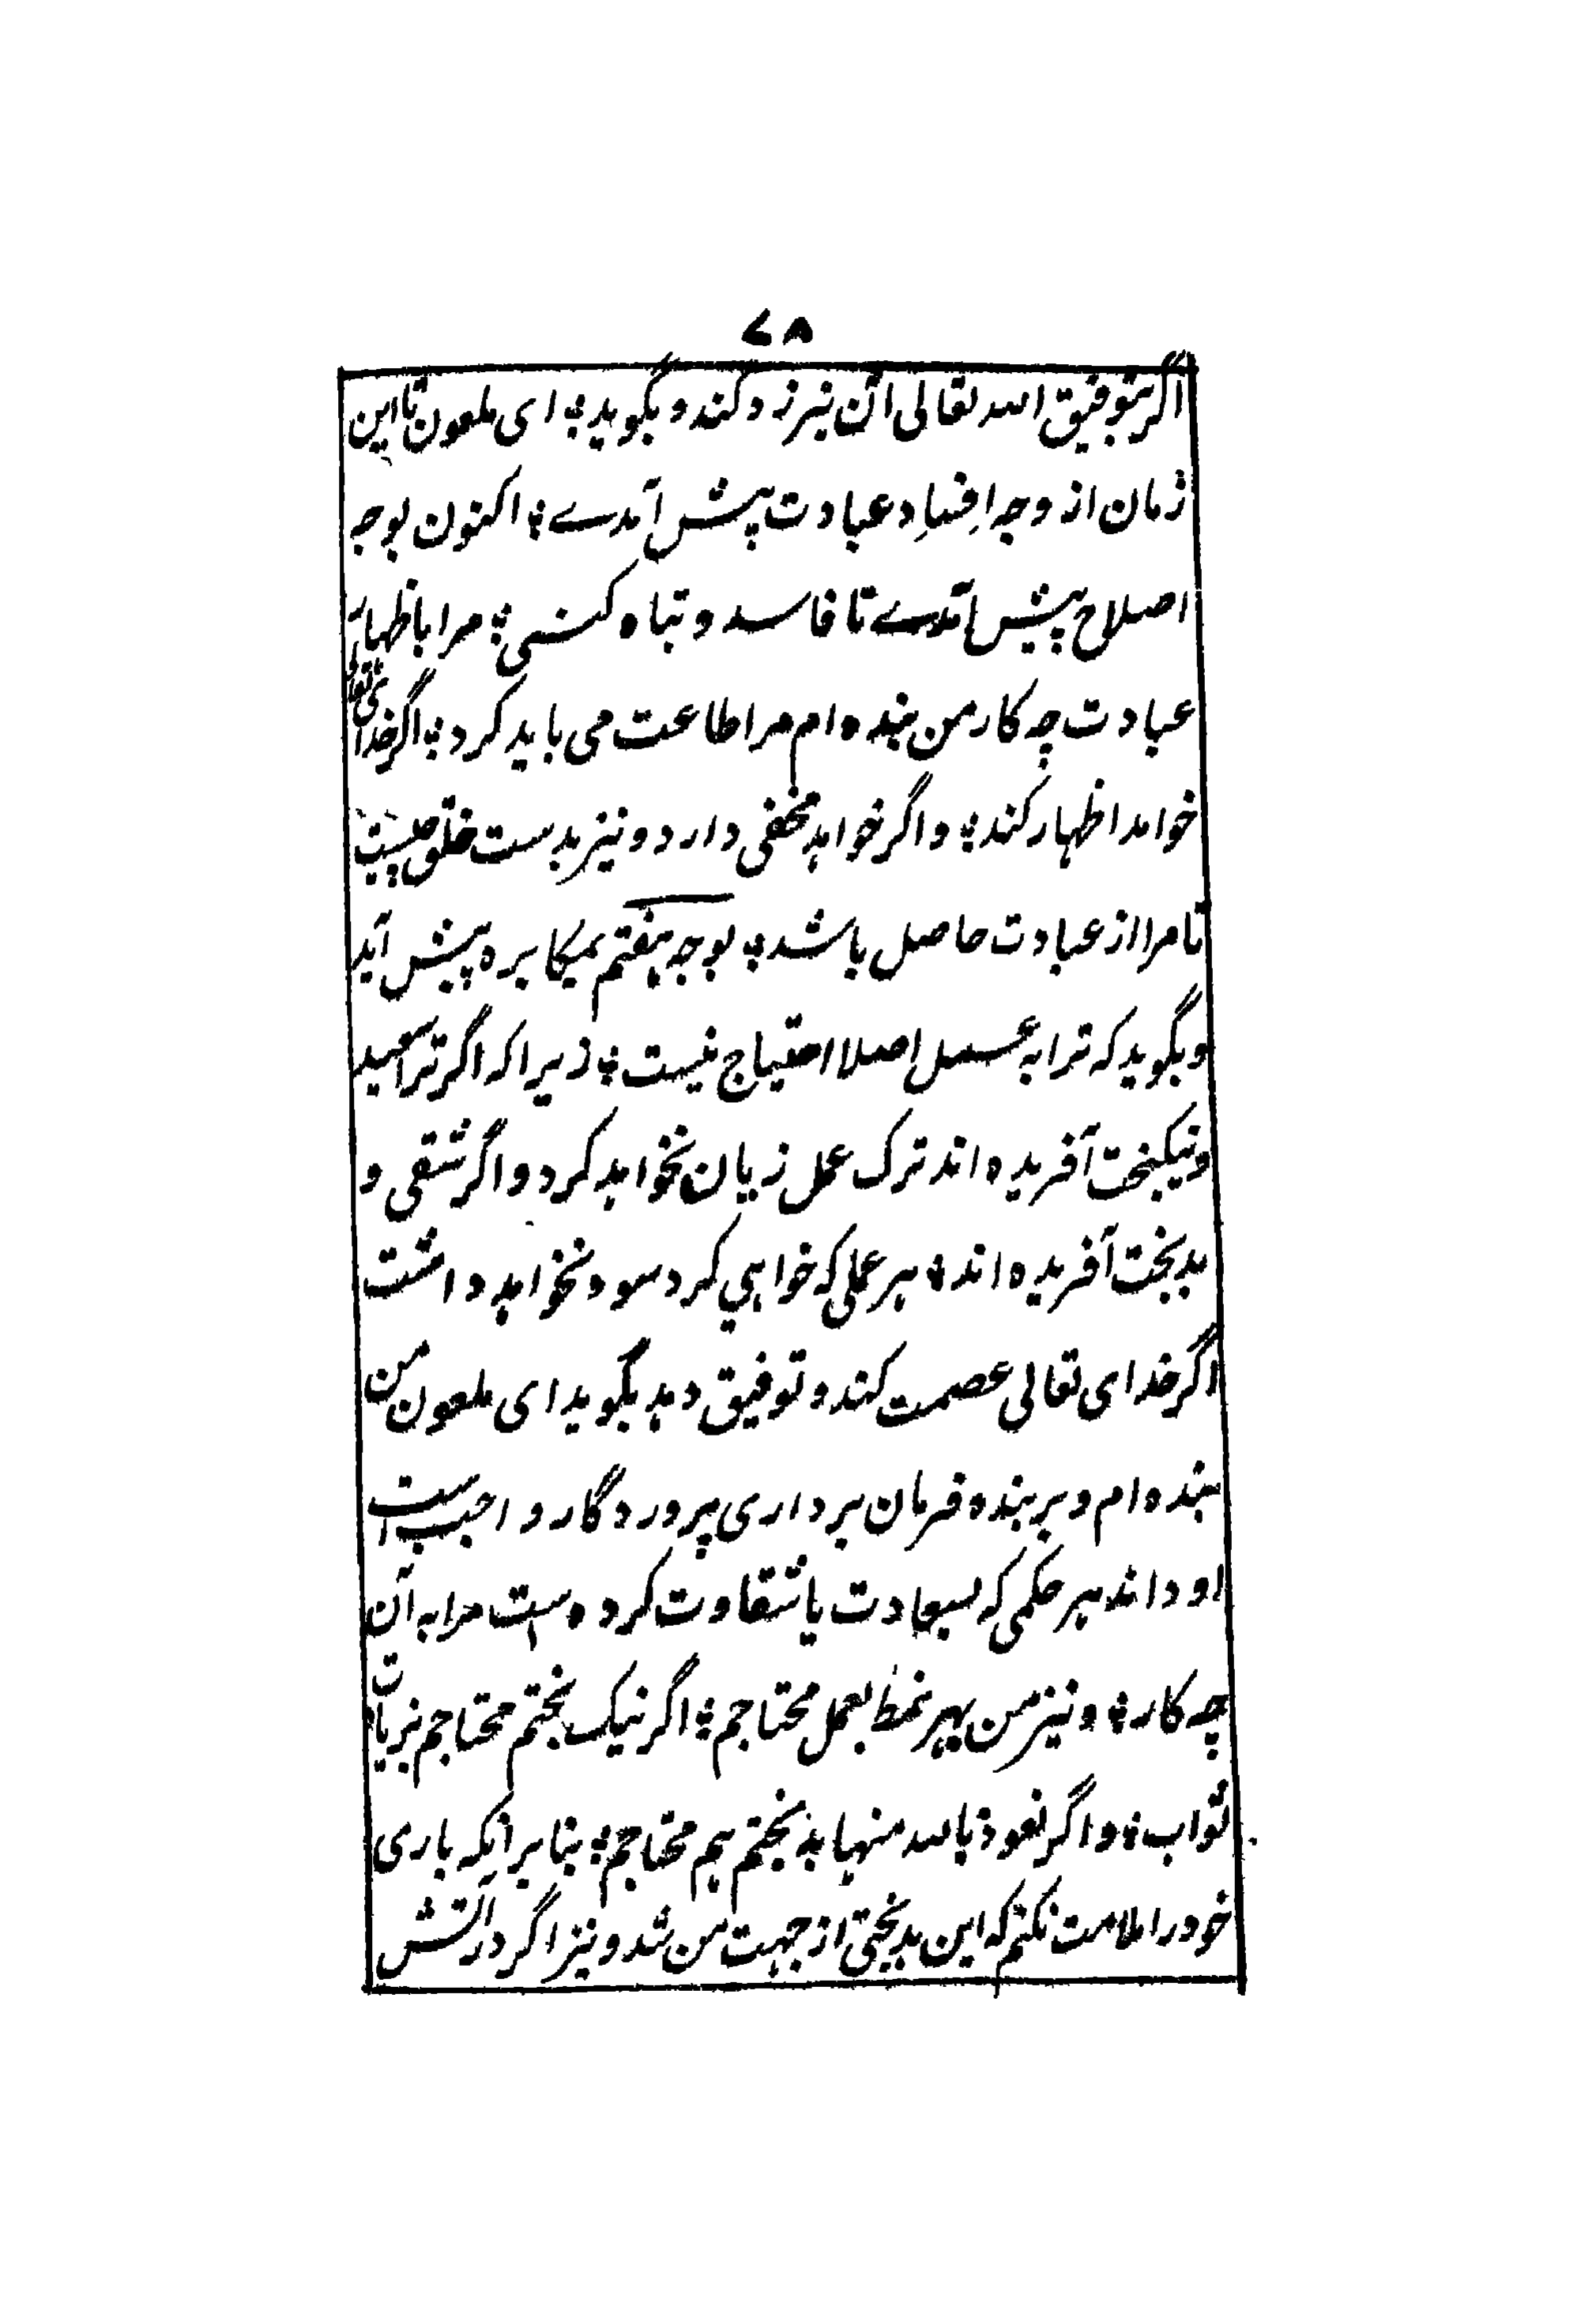 ۷۸
اگر بتوفیق الله تعالی آن نیز رد کند و بگوید؛ ای ملعون تا این
زمان از وجه افسادِ عبادت پیش آمدے؛ اکنون بوجه
اصلاح پیش آمدے تا فاسد و تباه کنی؛ مرا باظهار
عبادت چه کار من بنده ام مرا طاعت می باید کرد؛ اگر خدای تعالی
خواهد اظهار کند؛ و اگر خواهد مخفی دارد و نیز بدست خلق چیست
تا مرا از عبادت حاصل باشد؛ بوجه هفتم بمکابره پیش آید
و بگوید که ترا به عمل اصلا احتیاج نیست؛ زیرا که اگر ترا سعید
و نیکبخت آفریده اند ترک عمل زیان نخواهد کرد و اگر شقی و
بدبخت آفریده اند؛ هر عملی که خواهی کرد سود نخواهد داشت
اگر خدای تعالی عصمت کند و توفیق دهد بگوید ای ملعون من
بنده ام و بر بنده فرمان برداری پروردگار واجب است
او داند هر حکمی که بسعادت یا شقاوت کرده است مرا به آن
چه کار؛ و نیز من بهر نمط بعمل محتاجم؛ اگر نیک بختم محتاجم بزیادت
ثواب؛ و اگر نعوذ بالله منها بدبختم هم محتاجم؛ بنا بر آنکه باری
خود را ملامت نکنم که این بدبختی از جهت من شد و نیز اگر در آتش